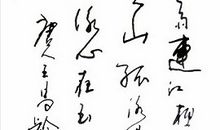 雨連江
山孤洛
冰心在玉
唐人王昌齡